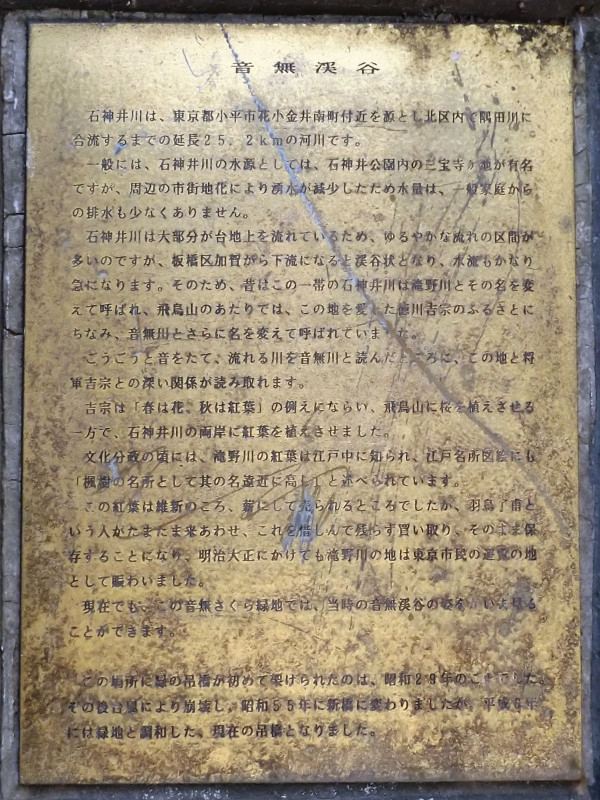 音無渓谷
石神井川は、東京都小平市花小金井南町付近を源とし北区内で隅田川に
合流するまでの延長25.2kmの河川です。
一般には、石神井川の水源としては、石神井公園内の三宝寺ヶ池が有名
ですが、周辺の市街地化により湧水が減少したため水量は、一般家庭から
の排水も少なくありません。
石神井川は大部分が台地上を流れているため、ゆるやかな流れの区間が
多いのですが、板橋区加賀から下流になると渓谷状となり、水流もかなり
急になります。そのため、昔はこの一帯の石神井川は滝野川とその名を変
えて呼ばれ、飛鳥山のあたりでは、この地を愛した徳川吉宗のふるさとに
ちなみ、音無川とさらに名を変えて呼ばれていました。
ごうごうと音をたて、流れる川を音無川と読んだところに、この地と将
軍吉宗との深い関係が読み取れます。
吉宗は「春は花、秋は紅葉」の例えにならい、飛鳥山に桜を植えさせる
一方で、石神井川の両岸に紅葉を植えさせました。
文化分政の頃には、滝野川の紅葉は江戸中に知られ、江戸名所図絵にも
「楓樹の名所として其の名遠近に高し」と述べられています。
この紅葉は維新のころ、薪にして売られるところでしたが、羽鳥了甫と
いう人がたまたま来あわせ、これを惜しんで残らず買い取り、そのまま保
存することになり、明治大正にかけても滝野川の地は東京市民の遊覧の地
として賑わいました。
現在でも、この音無さくら緑地では、当時の音無渓谷の姿をかいま見る
ことができます。
この場所に緑の吊橋が初めて架けられたのは、昭和29年のことでした。
その後台風により崩壊し、昭和55年に新橋に変わりましたが、平成6年
には緑地と調和した、現在の吊橋となりました。